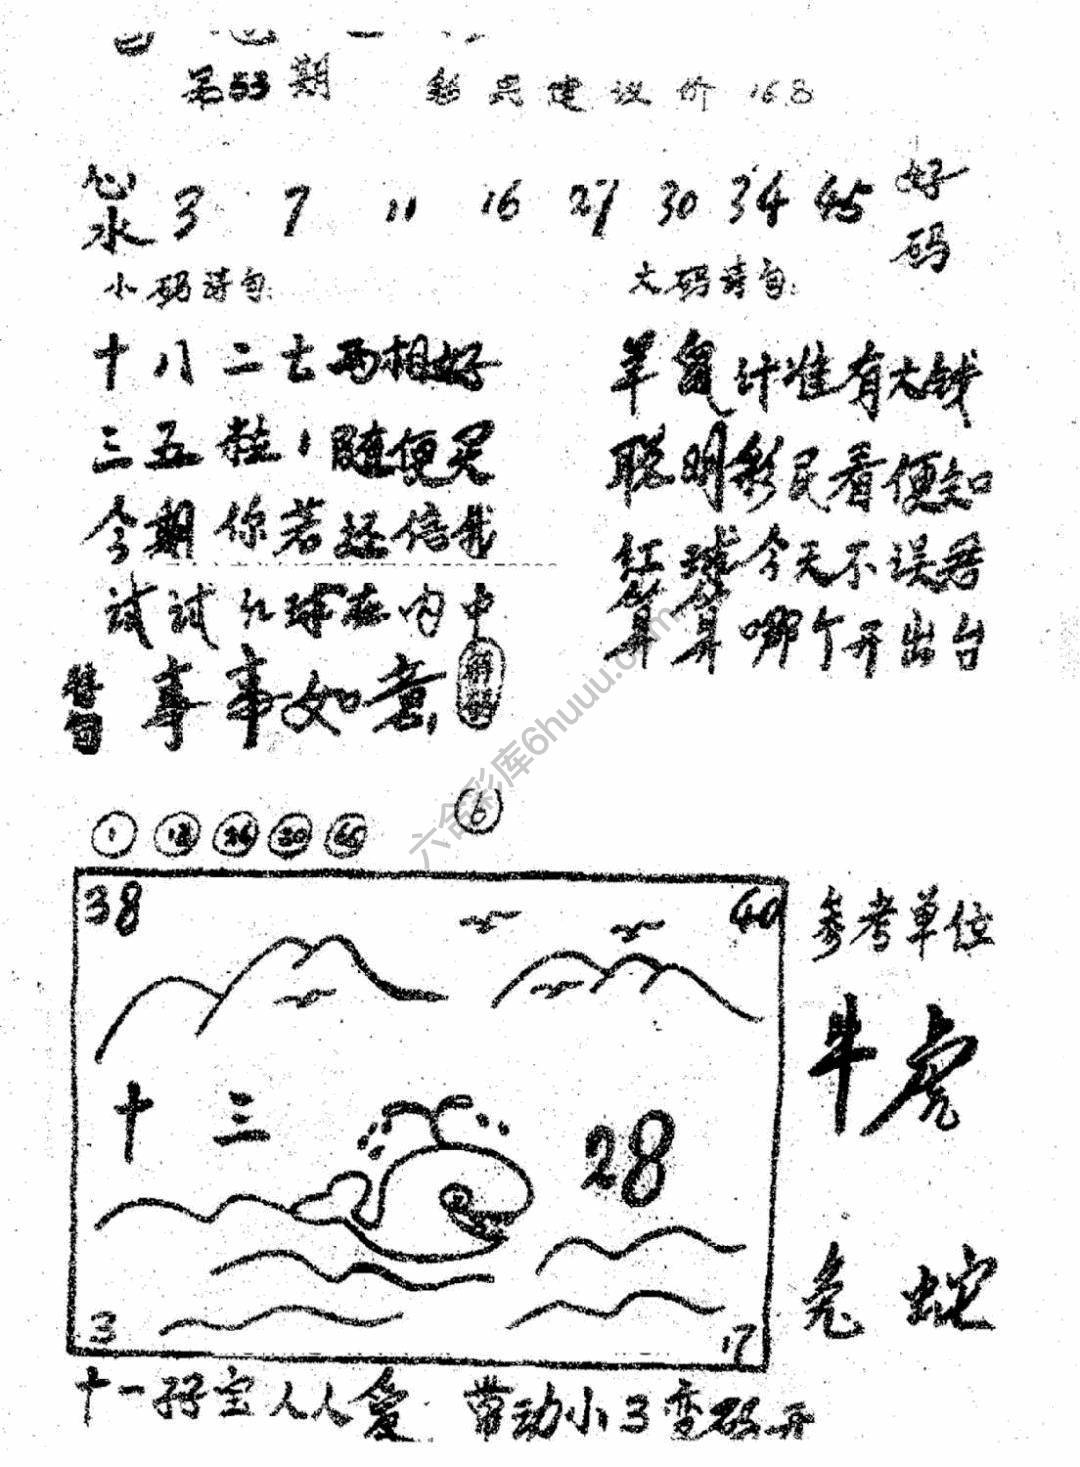 第53期 彩民建议价 168
心水 3 7 11 16 27 30 34 45 好码
小码诗句: 大码诗句:
十八二七两相好
三五 随便灵
今期你若还信我
试试红球在内中
羊兔计准有大钱
聪明彩民看便知
红球今天不误君
算算哪个开出台
事事如意
1 26 30 45 6
38 40
十三 28
3 17
参考单位
牛虎
兔蛇
十一好宝人人爱 带动小3变码开
六合彩库6huuu.com